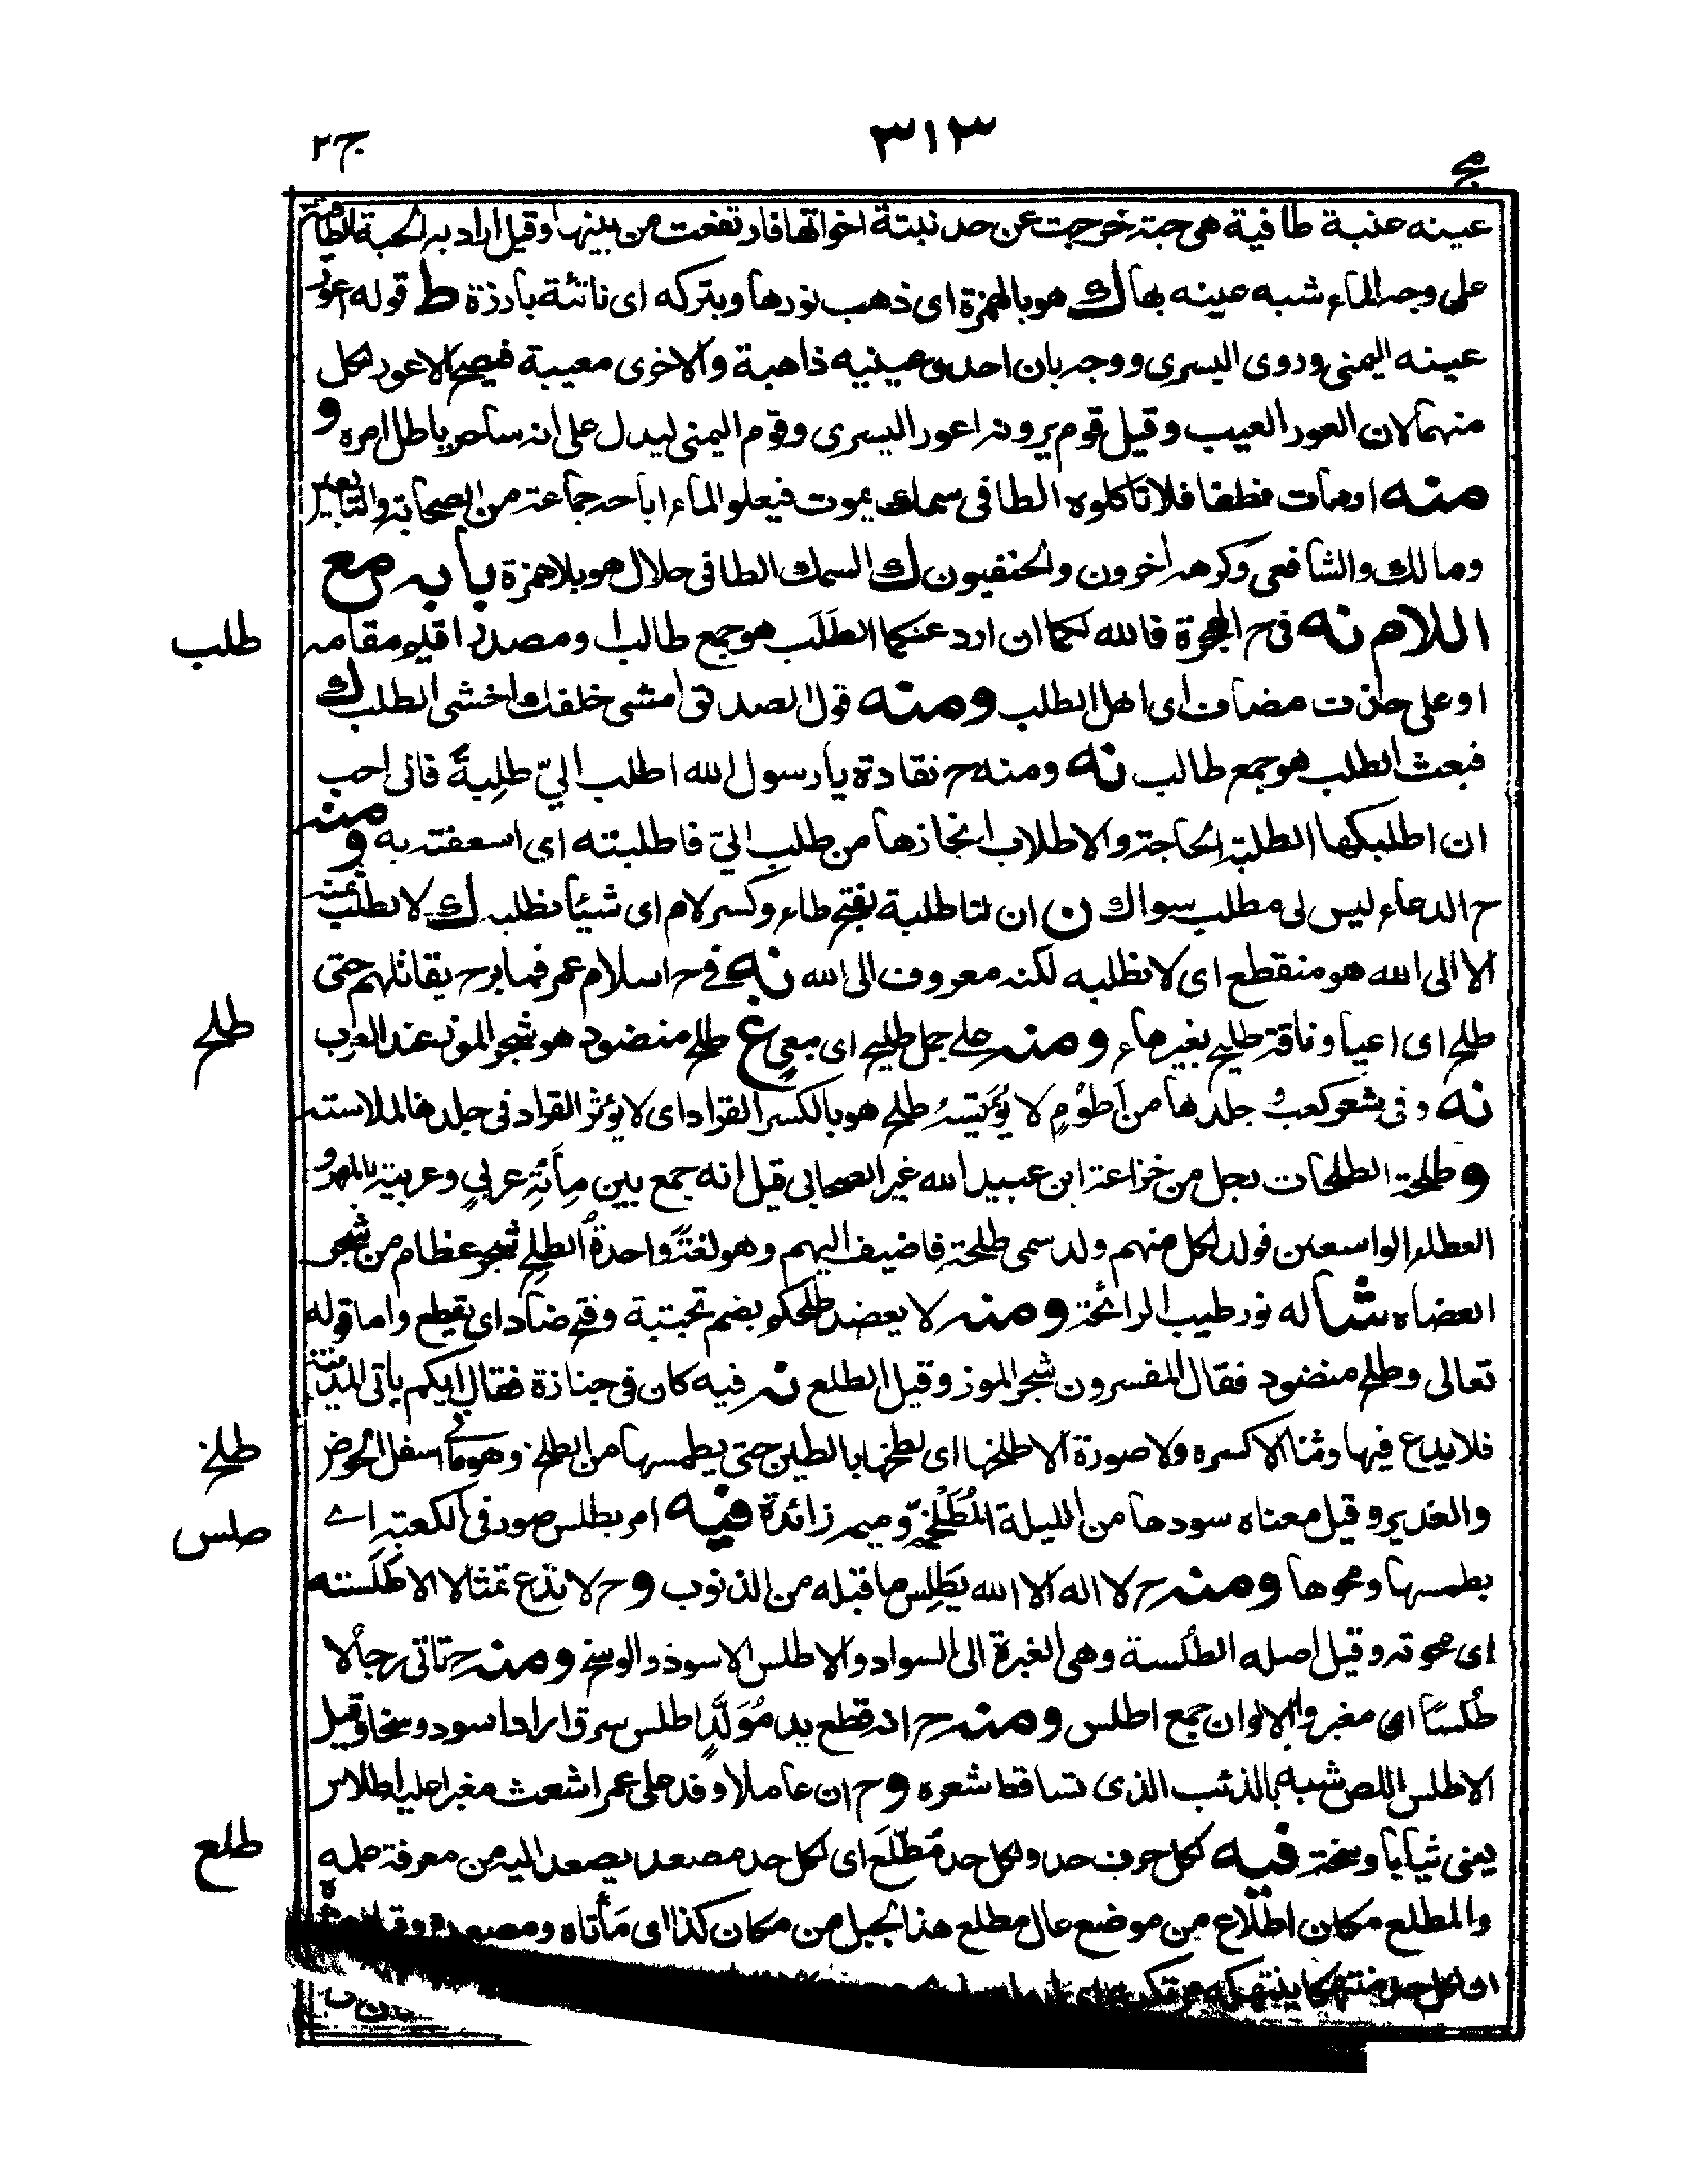 ج ٢
٣١٣
مج
عينه عنبة طافية هى حبة خرجت عن حد نبتة اخواتها فارتفعت من بينها وقيل اراد به الحبة الطافية
على وجه الماء شبه عينه بها ك هو بالهمزة اى ذهب نورها وبتركه اى ناتئة بارزة ط قوله اعور
عينه اليمنى وروى اليسرى ووجه بان احدى عينيه ذاهبة والاخرى معيبة فيصح الاعور لكل
منهما لان العور العيب وقيل قوم يرونه اعور اليسرى وقوم اليمنى ليدل على انه ساحر باطل امره و
منه او مات فطفا فلا تاكلوه الطافى سمك يموت فيعلو الماء اباحه جماعة من الصحابة والتابعين
ومالك والشافعى وكرهه اخرون والحنفيون ك السمك الطافى حلال هو بلا همزة بابه مع
اللام نه فى ح الهجرة فالله لكما ان ارد عنكما الطَلَب هو جمع طالب او مصدر اقيم مقامه
طلب
او على حذف مضاف اى اهل الطلب ومنه قول الصديق امشى خلفك واخشى الطلب ك
فبعث الطلب هو جمع طالب نه ومنه ح نقادة يا رسول الله اطلب الىّ طلِبةً فانى احب
ان اطلبكها الطلبة الحاجة والاطلاب انجازها من طلب الىّ فاطلبته اى اسعفته به ومنه
ح الدعاء ليس لى مطلب سواك ن ان لنا طلبة بفتح طاء وكسر لام اى شيئا نطلبه ك لا نطلب ثمنه
الا الى الله هو منقطع اى لا نطلبه لكنه معروف الى الله نه فى ح اسلام عمر فما برح يقاتلهم حتى
طلح اى اعيا وناقة طليح بغير هاء ومنه على جمل طليح اى معى غ طلح منضود هو شجر الموز عند العرب
طلح
نه وفى شعر كعب و جلدها من اَطوْمٍ لا يُؤَيّسُه طلح هو بالكسر القراد اى لا يؤثر القراد فى جلدها لملاسته
و طلحة الطلحات رجل من خزاعة ابن عبيد الله غير الصحابى قيل انه جمع بين مِأَئةِ عربىٍ وعربية بالمهر و
العطاء الواسعين فولد لكل منهم ولد سمى طلحة فاضيف اليهم وهو لغةً واحدةُ الطلح شجر عظام من شجر
العضاه شا له نور طيب الرائحة ومنه لا يعضد طلحكم بضم تحتية وفتح ضاد اى يقطع واما قوله
تعالى وطلح منضود فقال المفسرون شجر الموز وقيل الطلع نه فيه كان فى جنازة فقال ايكم ياتى المدينة
فلا يدع فيها وثنا الا كسره ولا صورة الا طلخها اى لطخها بالطين حتى يطمسها من الطلخ وهو ما فى اسفل الحوض
طلخ
والغدير وقيل معناه سودها من الليلة المُطْلَخِمّة وميم زائدة فيه امر بطلس صور فى الكعبة اى
طلس
بطمسها ومحوها ومنه ح لا اله الا الله يَطلِس ما قبله من الذنوب و ح لا تدع تمثالا الا طَلَسته
اى محوته وقيل اصله الطُلسة وهى الغبرة الى السواد والاطلس الاسود والوسخ ومنه ح تاتى رجالا
طُلسًا اى مغبرو الالوان جمع اطلس ومنه ح انه قطع يد مُوَلَّدٍ اطلس سرق اراد اسود وسخا وقيل
الاطلس اللص شبه بالذئب الذى تساقط شعره و ح ان عاملا وفد على عمر اشعث مغبرا عليه اطلاس
يعنى ثيابا وسخة فيه لكل حرف حد ولكل حد مُطّلَع اى لكل حد مصعد يصعد اليه من معرفة علمه
طلع
والمطلع مكان اطّلاع من موضع عال مطلع هذا الجبل من مكان كذا اى مَأتاه ومصعده وقيل
او لكل حد منتهكا ينتهكه مرتكبه